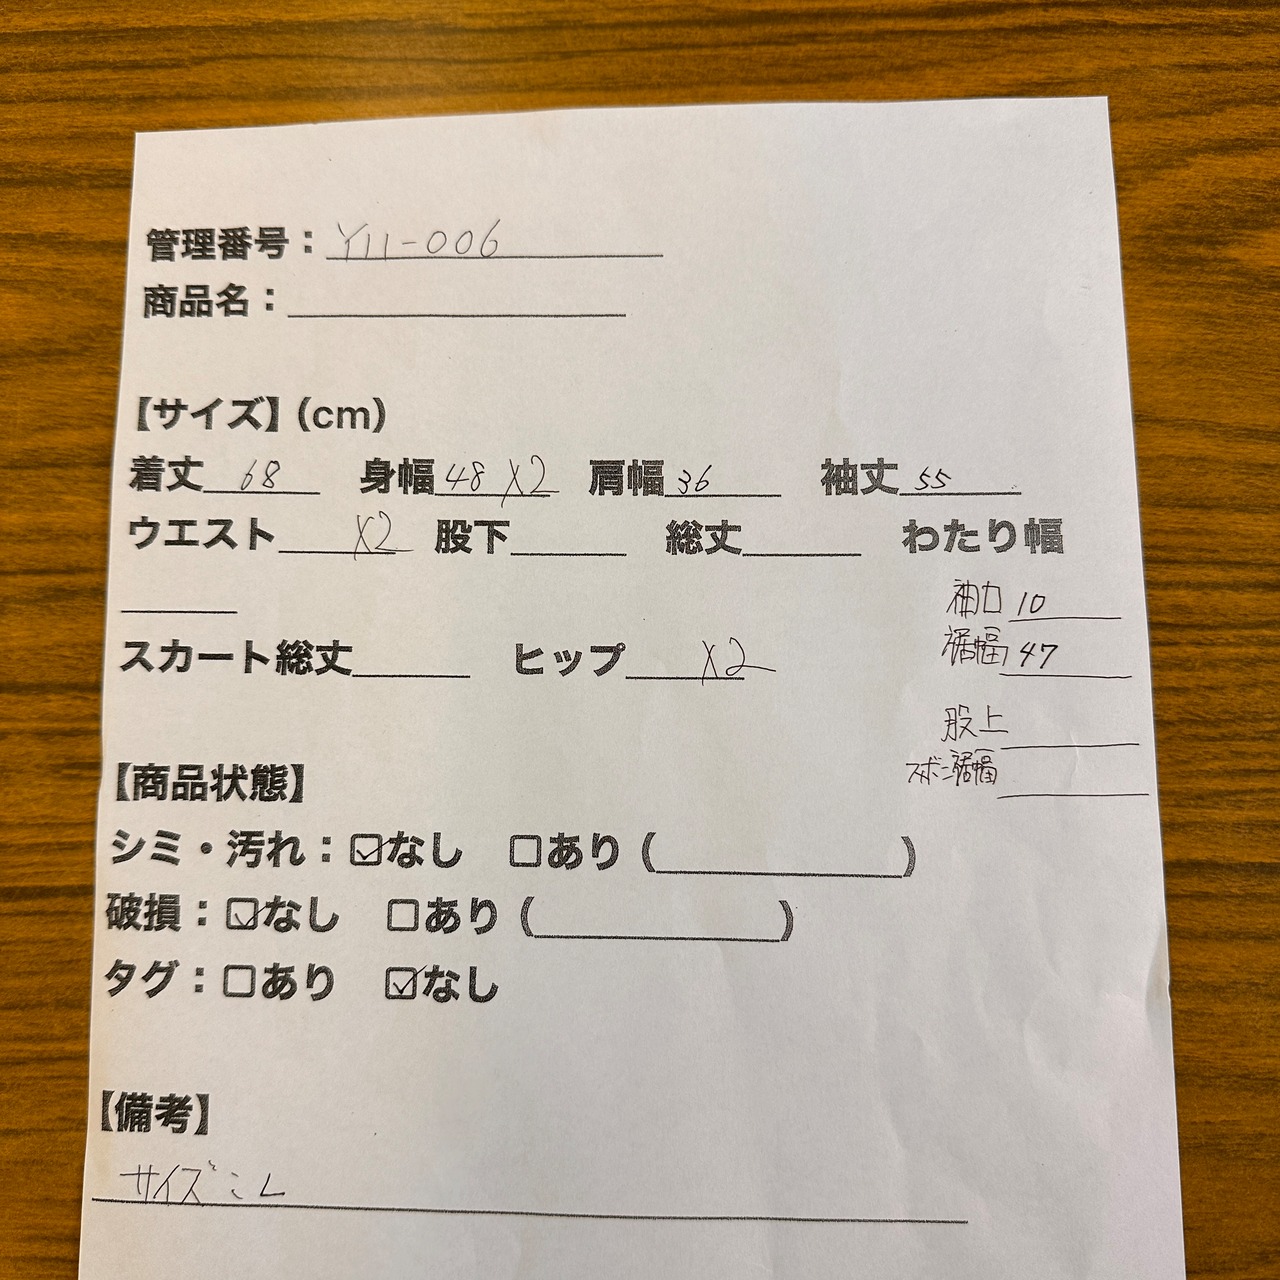 管理番号：Y11-006
商品名：
【サイズ】(cm)
着丈 68 身幅 48 X2 肩幅 36 袖丈 55
ウエスト X2 股下 総丈 わたり幅
袖口 10
裾幅 47
スカート総丈 ヒップ X2
股上
ズボン裾幅
【商品状態】
シミ・汚れ：☑なし □あり（ ）
破損：☑なし □あり（ ）
タグ：□あり ☑なし
【備考】
サイズ：L